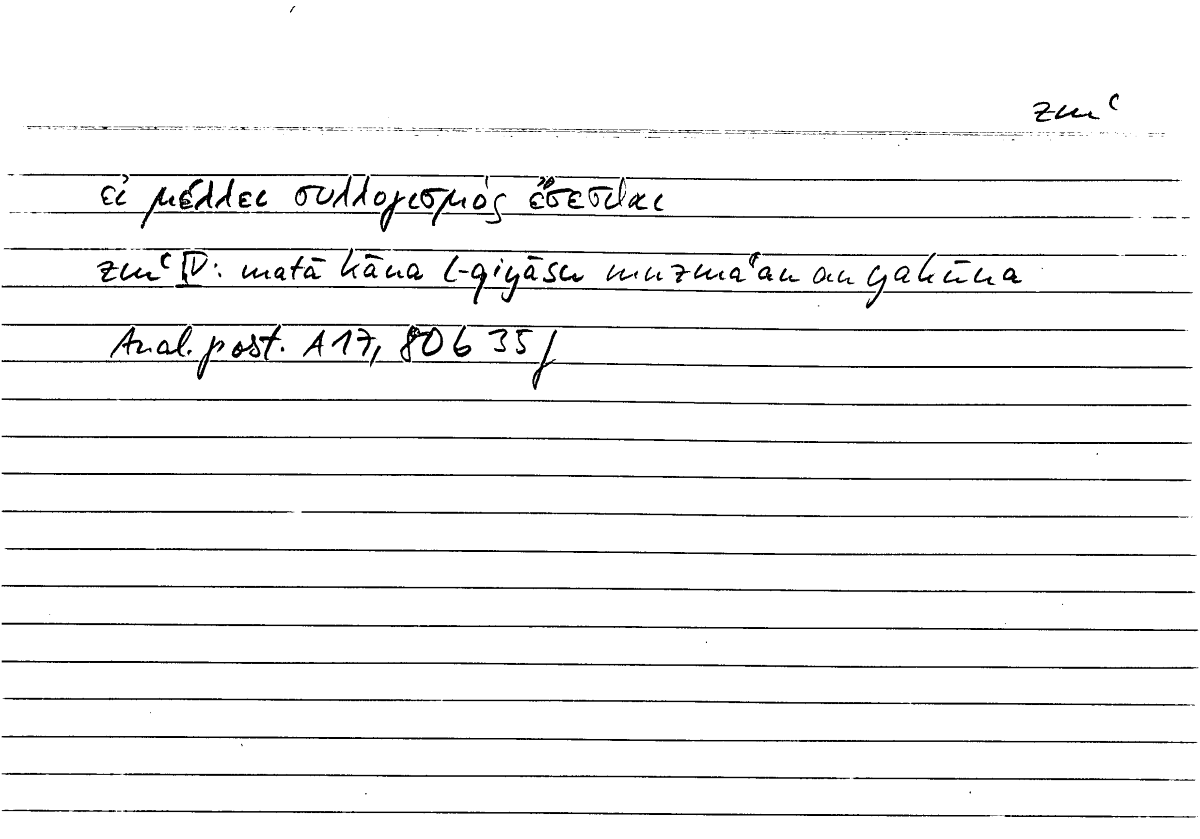 zmʿ
εἰ μέλλει συλλογισμός ἔσεσθαι
zmʿ IV: matā kāna l-qiyāsu muzmaʿan an yakūna
Anal. post. A 17, 80 b 35 f